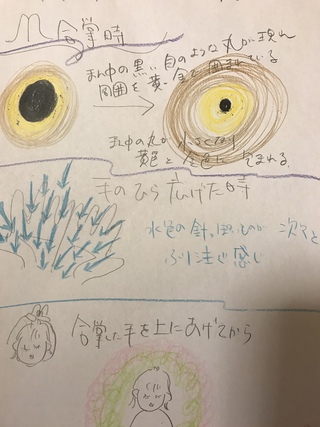 合掌時
まん中の黒い目のような丸が現れ
周囲を黄・金で囲まれている
まん中の丸が小さくなり
黄色と金色に包まれる
手のひら広げた時
水色の針っぽいのが次々と
ふり注ぐ感じ
合掌した手を上にあげてから